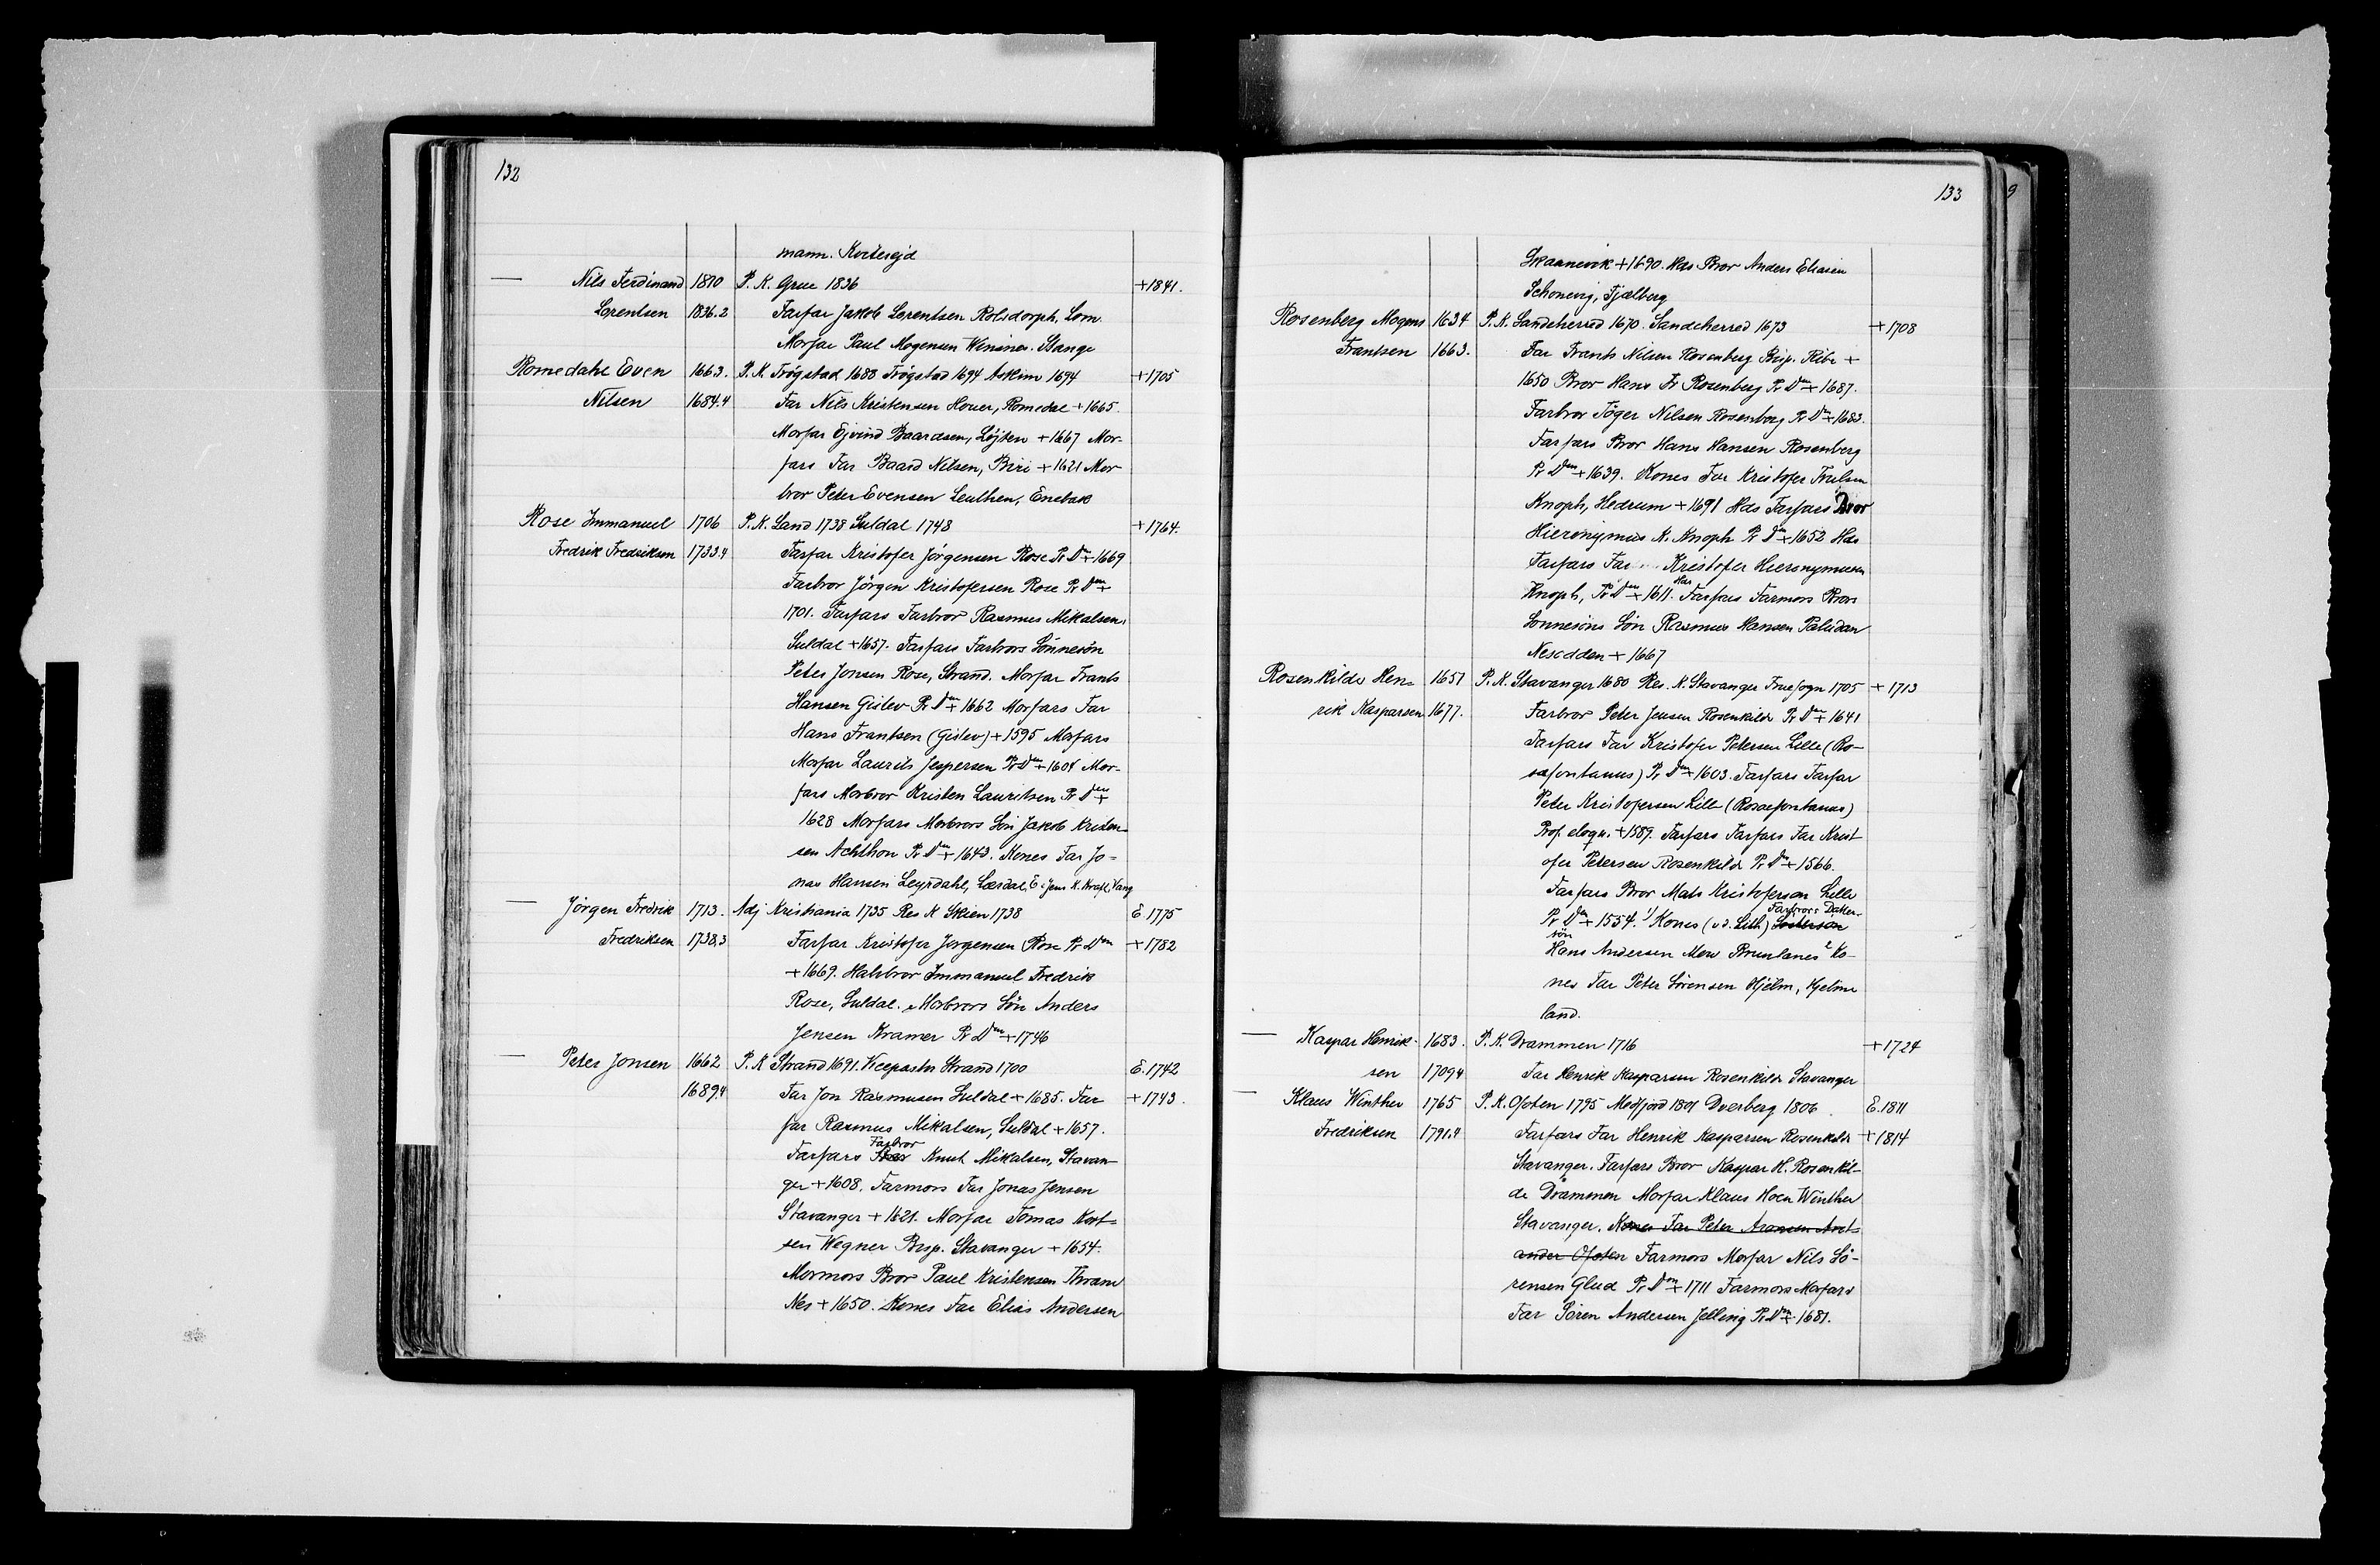 132
mann. Kvitesejd
— Nils Ferdinand 1810 P. K. Grue 1836 +1841.
Lorentsen 1836.2 Farfar Jakob Lorentsen Rolsdorph, Lom.
Morfar Paul Mogensen Wensner. Stange
Romedahl Even 1663. P. K. Trögstad 1688 Trögstad 1694 Askim 1694 +1705
Nilsen 1684.4 Far Nils Kristensen Houer, Romedal +1665.
Morfar Ejvind Baardsen, Löjten +1667 Mor-
fars Far Baard Nilsen, Biri +1621 Mor
bror Peter Evensen Leuthen, Enebak
Rose Immanuel 1706 P. K. Land 1738 Suldal 1748 +1764.
Fredrik Fredriksen 1733.4 Farfar Kristofer Jörgensen Rose Pr Dm +1669
Farbror Jörgen Kristofersen Rose Pr Dm +
1701. Farfars Farbror Rasmus Mikalsen,
Suldal +1657. Farfars Farbrors Sönnesön
Peter Jonsen Rose, Strand. Morfar Frants
Hansen Gislev Pr Dm + 1662 Morfars Far
Hans Frantsen (Gislev) +1595 Morfars
Morfar Laurits Jespersen Pr Dm + 1604 Mor-
fars Morbror Kristen Lauritsen Pr Dm +
1628 Morfars Morbrors Sön Jakob Kristen-
sen Achthon Pr Dm + 1643. Kones Far Jo=
nas Hansen Leyrdahl, Lærdal, E. Jens K. Kraft, Vang
— Jörgen Fredrik 1713. Adj Kristiania 1735 Res K Skien 1738 E 1775
Fredriksen 1738.3 Farfar Kristofer Jorgensen Rose Pr Dm +1782
+1669. Halvbror Immanuel Fredrik
Rose, Suldal. Morbrors Sön Anders
Jensen Kramer Pr Dm +1746
— Peter Jonsen 1662 P. K Strand 1691. Vicepastor Strand 1700 E. 1742
1689.4 Far Jon Rasmusen Suldal + 1685. Far +1743.
far Rasmus Mikalsen, Suldal +1657.
Farbror
Farfars Knut Mikalsen, Stavan-
ger +1608. Farmors Far Jonas Jensen
Stavanger +1621. Morfar Tomas Kort=
sen Wegner Bisp. Stavanger +1654.
Mormors Bror Paul Kristensen Thrane
Nes +1650. Kones Far Elias Andersen
133
Skaanevik +1690. Hds Bror Anders Eliasen
Schonevig, Fjælberg
Rosenberg Mogens 1634 P. K. Sandeherred 1670. Sandeherred 1673 +1708
Frantsen 1663. Far Frants Nilsen Rosenberg Bisp. Ribe +
1650 Bror Hans Fr Rosenberg Pr Dm +1687.
Farbror Töger Nilsen Rosenberg Pr Dm +1683.
Farfars Bror Hans Hansen Rosenberg
Pr Dm +1639. Kones Far Kristofer Trulsen
Knoph, Hedrum +1691 Hds Farfars Bror
Hieronymus K. Knoph Pr Dm +1652 Hds
Farfars Far Kristofer Hieronymusen
Hds
Knoph, Pr Dm +1611. Farfars Farmors Brors
Sonnesöns Sön Rasmus Hansen Paludan
Nesodden +1667
Rosenkilde Hen= 1651 P. K. Stavanger 1680 Res. K. Stavanger Fruesogn 1705 +1713
rik Kasparsen 1677. Farbror Peter Jensen Rosenkilde Pr Dm +1641
Farfars Far Kristofer Petersen Lille (Ro-
safontanus) Pr Dm +1603. Farfars Farfar
Peter Kristofersen Lille (Rosaefontanus)
Prof. eloqu. +1589. Farfars Farfars Far Krist
ofer Petersen Rosenkilde Pr Dm +1566.
Farfars Bror Mats Kristofersen Lille
Farbrors Datter-
Pr Dm +1554. 1) Kones (v. d. Lith) Sösterson
sön
Hans Andersen Mow Brunlanes 2 Ko-
nes Far Peter Sörensen Hjelm, Hjelme
land.
— Kaspar Henrik- 1683. P. K. Drammen 1716 +1724
sen 1709.4 Far Henrik Kasparsen Rosenkilde Stavanger
— Klaus Winther 1765 P. K. Ofoten 1795 Medfjord 1801 Dverberg 1806. E. 1811
Fredriksen 1791.4 Farfars Far Henrik Kasparsen Rosenkilde +1814
Stavanger. Farfars Bror Kaspar H. Rosenkil-
de Drammen Morfar Klaus Hoen Winther
Stavanger. Kones Far Peter Aronsen Arct-
ander Ofoten Farmors Morfar Nils Sö-
rensen Glud Pr Dm +1711 Farmors Morfars
Far Sören Andersen Jelling Pr Dm + 1681.